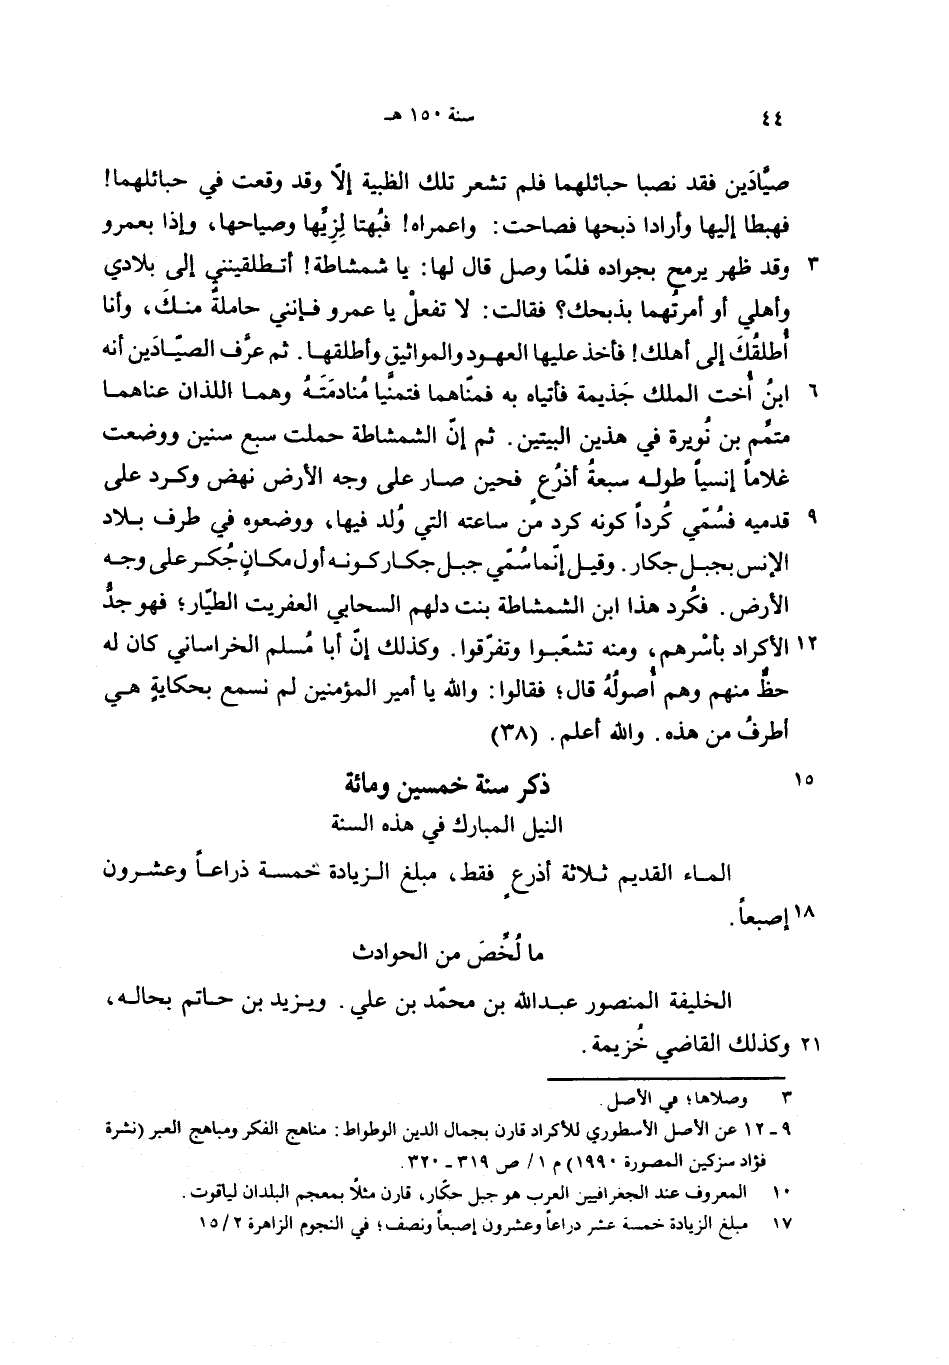 ٤٤ سنة ١٥٠ هـ
صيَّادَين فقد نصبا حبائلهما فلم تشعر تلك الظبية إلاّ وقد وقعت في حبائلهما!
فهبطا إليها وأرادا ذبحها فصاحت: واعمراه! فبُهتا لِزيِّها وصياحها، وإذا بعمرو
٣ وقد ظهر يرمح بجواده فلمّا وصل قال لها: يا شمشاطة! أتـطلقينني إلى بلادي
وأهلي أو أمرتُهما بذبحك؟ فقالت: لا تفعلْ يا عمرو فـإنني حاملةٌ منـكَ، وأنا
أُطلقُكَ إلى أهلك! فأخذ عليها العهود والمواثيق وأطلقهـا. ثم عرَّف الصيّـادَين أنه
٦ ابنُ أُخت الملك جَذيمة فأتياه به فمنّاهما فتمنَّيا مُنادمَتَـهُ وهمـا اللذان عناهمـا
متمِّم بن نُويرة في هذين البيتين. ثم إنّ الشمشاطة حملت سبع سنين ووضعت
غلاماً إنسياً طولـه سبعةُ أذرُعٍ فحين صـار على وجه الأرض نهض وكـرد على
٩ قدميه فسُمّي كُرداً كونه كرد من ساعته التي وُلد فيها، ووضعوه في طرف بـلاد
الإنس بجبـل جكار. وقيـل إنّما سُمّي جبـل جكـار كـونـه أول مكـانٍ جُكـر على وجـه
الأرض. فكُرد هذا ابن الشمشاطة بنت دلهم السحابي العفريت الطيّار؛ فهو جدُّ
١٢ الأكراد بأسْرهم، ومنه تشعّبـوا وتفرّقوا. وكذلك إنّ أبا مُسلم الخراساني كان له
حظٌّ منهم وهم أُصولُهُ قال؛ فقالوا: والله يا أمير المؤمنين لم نسمع بحكايةٍ هـي
أطرفُ من هذه. والله أعلم. (٣٨)
١٥ ذكر سنة خمسين ومائة
النيل المبارك في هذه السنة
المـاء القديم ثـلاثة أذرعٍ فقط، مبلغ الـزيادة خمسـة ذراعـاً وعشـرون
١٨ إصبعاً.
ما لُخِّصَ من الحوادث
الخليفة المنصور عبـدالله بن محمّد بن علي. ويـزيد بن حـاتم بحالـه،
٢١ وكذلك القاضي خُزيمة.
٣ وصلاها؛ في الأصل.
٩ ـ ١٢ عن الأصل الأسطوري للأكراد قارن بجمال الدين الوطواط: مناهج الفكر ومباهج العبر (نشرة
فؤاد سزكين المصورة ١٩٩٠) م ١/ ص ٣١٩ ـ ٣٢٠.
١٠ المعروف عند الجغرافيين العرب هو جبل حكّار، قارن مثلاً بمعجم البلدان لياقوت.
١٧ مبلغ الزيادة خمسة عشر دراعاً وعشرون إصبعاً ونصف؛ في النجوم الزاهرة ٢/ ١٥